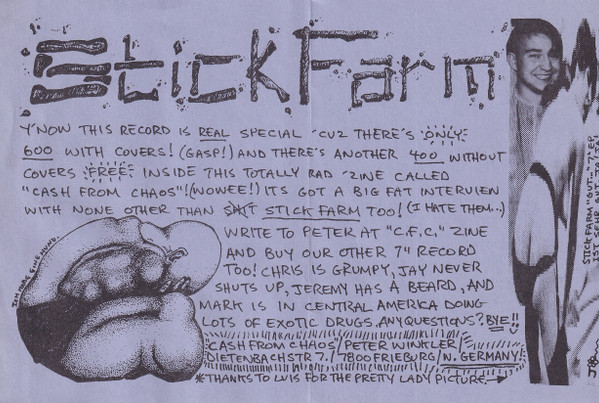 Stick Farm
Y'NOW THIS RECORD IS REAL SPECIAL 'CUZ THERE'S ONLY
600 WITH COVERS! (GASP!) AND THERE'S ANOTHER 400 WITHOUT
COVERS FREE INSIDE THIS TOTALLY RAD 'ZINE CALLED
"CASH FROM CHAOS"! (WOWEE!) ITS GOT A BIG FAT INTERVIEW
WITH NONE OTHER THAN STICK FARM TOO! (I HATE THEM...)
WRITE TO PETER AT "C.F.C." ZINE
AND BUY OUR OTHER 7" RECORD
TOO! CHRIS IS GRUMPY, JAY NEVER
SHUTS UP, JEREMY HAS A BEARD, AND
MARK IS IN CENTRAL AMERICA DOING
LOTS OF EXOTIC DRUGS. ANY QUESTIONS? BYE!!
CASH FROM CHAOS / PETER WINKLER /
DIETENBACHSTR 7. / 7800 FRIEBURG / W. GERMANY
*THANKS TO LUIS FOR THE PRETTY LADY PICTURE. →
STICK FARM "OUT-" 7" E.P.
IST SEHR GUT JA